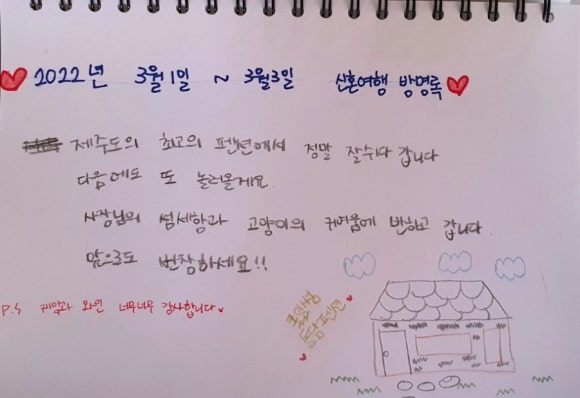 2022년 3월 1일 ~ 3월 3일 신혼여행 방명록
제주도의 최고의 펜션에서 정말 잘쉬다 갑니다
다음에도 또 놀러올게요
사장님의 섬세함과 고양이의 귀여움에 반하고 갑니다.
앞으로도 번창하세요!!
P.S 케익과 와인 너무너무 감사합니다
돌담펜션